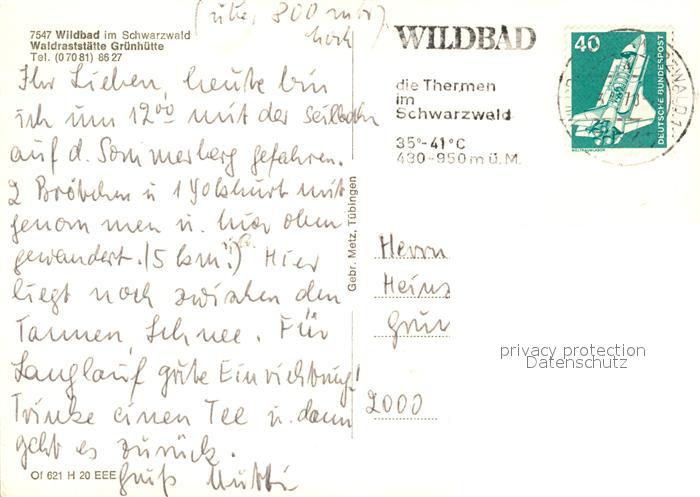 (über 800 mtr.
hoch)
7547 Wildbad im Schwarzwald
Waldraststätte Grünhütte
Tel. (0 70 81) 86 27
Ihr Lieben, heute bin
ich um 12⁰⁰ mit der Seilbahn
auf d. Sommerberg gefahren.
2 Brötchen u 1 Yohhurt mit
genommen u. hier oben
gewandert. (5 km!) Hier
liegt noch zwischen den
Tannen, Schnee. Für
Langlauf gute Einrichtung!
Trinke einen Tee u. dann
geht es zurück.
Gruß Mutti
Of 621 H 20 EEE
Gebr. Metz, Tübingen
WILDBAD
die Thermen
im
Schwarzwald
35°-41°C
430-950 m ü. M.
40
DEUTSCHE BUNDESPOST
WELTRAUMLABOR
Herrn
Heinz
Grun
2000
privacy protection
Datenschutz